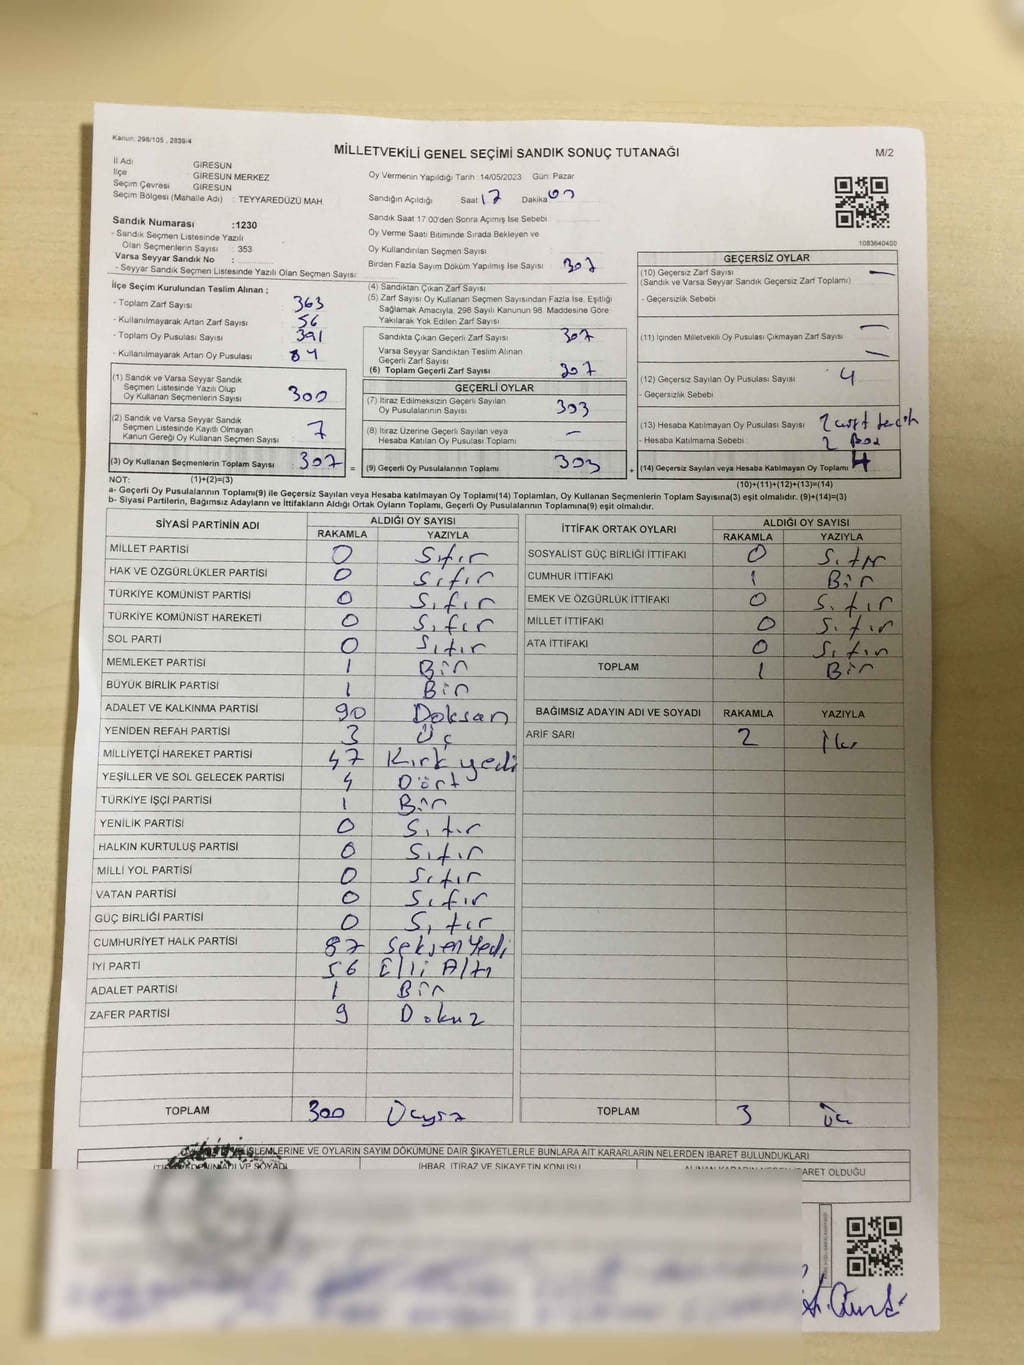 Kanun: 298/105 , 2839/4
MİLLETVEKİLİ GENEL SEÇİMİ SANDIK SONUÇ TUTANAĞI
M/2
İl Adı GİRESUN
İlçe GİRESUN MERKEZ
Seçim Çevresi GİRESUN
Seçim Bölgesi (Mahalle Adı) : TEYYAREDÜZÜ MAH
Oy Vermenin Yapıldığı Tarih : 14/05/2023 Gün: Pazar
Sandığın Açıldığı Saat 17 Dakika
Sandık Saat 17:00'den Sonra Açımış İse Sebebi
Oy Verme Saati Bitiminde Sırada Bekleyen ve
Oy Kullandırılan Seçmen Sayısı
Birden Fazla Sayım Döküm Yapılmış İse Sayısı 307
1083640400
Sandık Numarası :1230
- Sandık Seçmen Listesinde Yazılı
Olan Seçmenlerin Sayısı : 353
Varsa Seyyar Sandık No :
- Seyyar Sandık Seçmen Listesinde Yazılı Olan Seçmen Sayısı:
İlçe Seçim Kurulundan Teslim Alınan ;
- Toplam Zarf Sayısı 363
- Kullanılmayarak Artan Zarf Sayısı 56
- Toplam Oy Pusulası Sayısı 391
- Kullanılmayarak Artan Oy Pusulası 84
(1) Sandık ve Varsa Seyyar Sandık
Seçmen Listesinde Yazılı Olup
Oy Kullanan Seçmenlerin Sayısı 300
(2) Sandık ve Varsa Seyyar Sandık
Seçmen Listesinde Kayıtlı Olmayan
Kanun Gereği Oy Kullanan Seçmen Sayısı 7
(3) Oy Kullanan Seçmenlerin Toplam Sayısı 307 =
(4) Sandıktan Çıkan Zarf Sayısı
(5) Zarf Sayısı Oy Kullanan Seçmen Sayısından Fazla İse, Eşitliği
Sağlamak Amacıyla, 298 Sayılı Kanunun 98. Maddesine Göre
Yakılarak Yok Edilen Zarf Sayısı
Sandıkta Çıkan Geçerli Zarf Sayısı 307
Varsa Seyyar Sandıktan Teslim Alınan
Geçerli Zarf Sayısı
(6) Toplam Geçerli Zarf Sayısı 307
GEÇERLİ OYLAR
(7) İtiraz Edilmeksizin Geçerli Sayılan
Oy Pusulalarının Sayısı 303
(8) İtiraz Üzerine Geçerli Sayılan veya
Hesaba Katılan Oy Pusulası Toplamı —
(9) Geçerli Oy Pusulalarının Toplamı 303 +
GEÇERSİZ OYLAR
(10) Geçersiz Zarf Sayısı —
(Sandık ve Varsa Seyyar Sandık Geçersiz Zarf Toplamı)
- Geçersizlik Sebebi
(11) İçinden Milletvekili Oy Pusulası Çıkmayan Zarf Sayısı —
—
(12) Geçersiz Sayılan Oy Pusulası Sayısı 4
- Geçersizlik Sebebi
(13) Hesaba Katılmayan Oy Pusulası Sayısı 2
- Hesaba Katılmama Sebebi 2 Boş
(14) Geçersiz Sayılan veya Hesaba Katılmayan Oy Toplamı 4
NOT: (1)+(2)=(3)
(10)+(11)+(12)+(13)=(14)
a- Geçerli Oy Pusulalarının Toplamı(9) ile Geçersiz Sayılan veya Hesaba Katılmayan Oy Toplamı(14) Toplamları, Oy Kullanan Seçmenlerin Toplam Sayısına(3) eşit olmalıdır. (9)+(14)=(3)
b- Siyasi Partilerin, Bağımsız Adayların ve İttifakların Aldığı Ortak Oyların Toplamı, Geçerli Oy Pusulalarının Toplamına(9) eşit olmalıdır.
SİYASİ PARTİNİN ADI ALDIĞI OY SAYISI
RAKAMLA YAZIYLA
MİLLET PARTİSİ 0 Sıfır
HAK VE ÖZGÜRLÜKLER PARTİSİ 0 Sıfır
TÜRKİYE KOMÜNİST PARTİSİ 0 Sıfır
TÜRKİYE KOMÜNİST HAREKETİ 0 Sıfır
SOL PARTİ 0 Sıfır
MEMLEKET PARTİSİ 1 Bir
BÜYÜK BİRLİK PARTİSİ 1 Bir
ADALET VE KALKINMA PARTİSİ 90 Doksan
YENİDEN REFAH PARTİSİ 3 Üç
MİLLİYETÇİ HAREKET PARTİSİ 47 Kırk yedi
YEŞİLLER VE SOL GELECEK PARTİSİ 4 Dört
TÜRKİYE İŞÇİ PARTİSİ 1 Bir
YENİLİK PARTİSİ 0 Sıfır
HALKIN KURTULUŞ PARTİSİ 0 Sıfır
MİLLİ YOL PARTİSİ 0 Sıfır
VATAN PARTİSİ 0 Sıfır
GÜÇ BİRLİĞİ PARTİSİ 0 Sıfır
CUMHURİYET HALK PARTİSİ 87 Seksen Yedi
İYİ PARTİ 56 Elli Altı
ADALET PARTİSİ 1 Bir
ZAFER PARTİSİ 9 Dokuz
TOPLAM 300 Üçyüz
İTTİFAK ORTAK OYLARI ALDIĞI OY SAYISI
RAKAMLA YAZIYLA
SOSYALİST GÜÇ BİRLİĞİ İTTİFAKI 0 Sıfır
CUMHUR İTTİFAKI 1 Bir
EMEK VE ÖZGÜRLÜK İTTİFAKI 0 Sıfır
MİLLET İTTİFAKI 0 Sıfır
ATA İTTİFAKI 0 Sıfır
TOPLAM 1 Bir
BAĞIMSIZ ADAYIN ADI VE SOYADI RAKAMLA YAZIYLA
ARİF SARI 2 İki
TOPLAM 3 Üç
İŞLEMLERİNE VE OYLARIN SAYIM DÖKÜMÜNE DAİR ŞİKAYETLERLE BUNLARA AİT KARARLARIN NELERDEN İBARET BULUNDUKLARI
ADI VE SOYADI İHBAR, İTİRAZ VE ŞİKAYETİN KONUSU ALINAN KARARIN NEDEN İBARET OLDUĞU